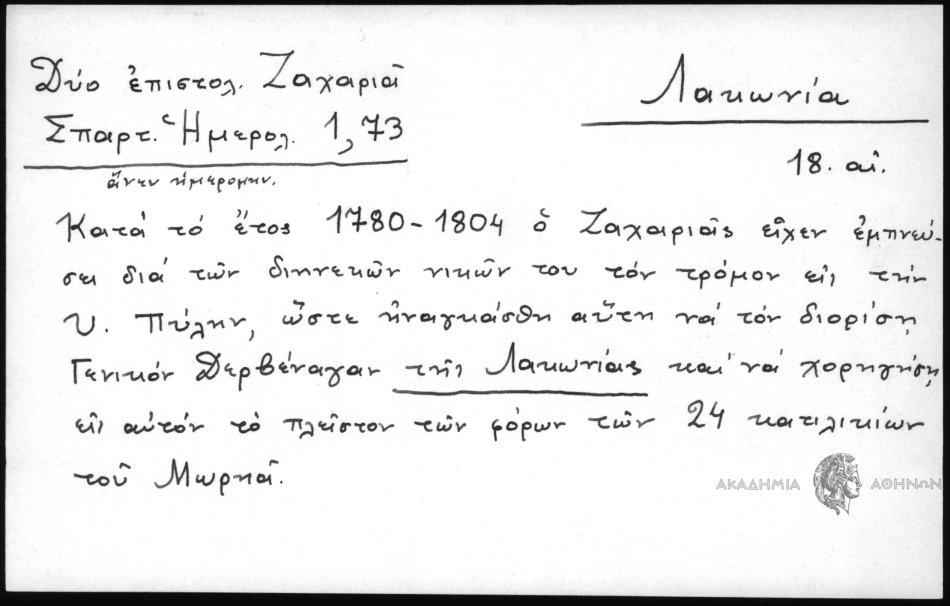 Δύο ἐπιστολ. Ζαχαριᾶ
Λακωνία
Σπαρτ. Ἡμερολ. 1,73
18. αἰ.
ἄνευ ἡμερομην.
Κατά τό ἔτος 1780-1804 ὁ Ζαχαριᾶς εἶχεν ἐμπνεύ-
σει διά τῶν διηνεκῶν νικῶν του τόν τρόμον εἰς τήν
Υ. Πύλην, ὥστε ἠναγκάσθη αὕτη νά τόν διορίσῃ
Γενικόν Δερβέναγαν τῆς Λακωνίας καί νά χορηγήσῃ
εἰς αὐτόν τό πλεῖστον τῶν φόρων τῶν 24 κατιλικίων
τοῦ Μωρηᾶ.
ΑΚΑΔΗΜΙΑ ΑΘΗΝΩΝ